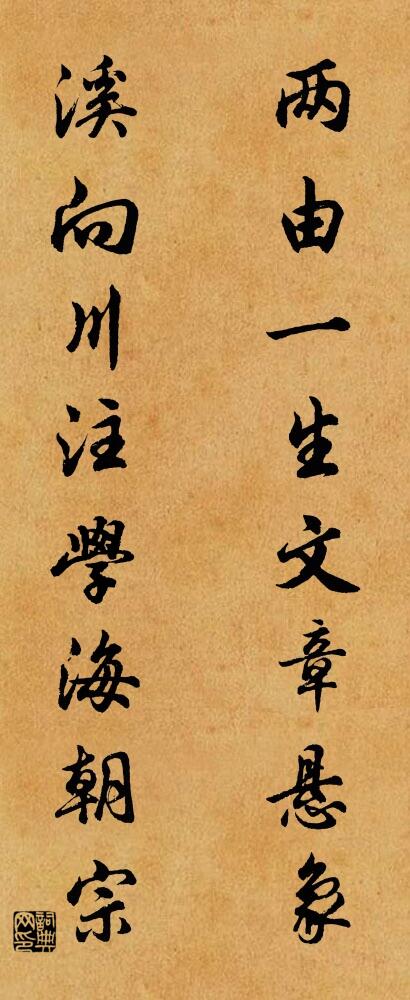 两由一生文章悬象
溪向川注學海朝宗
詞典网印